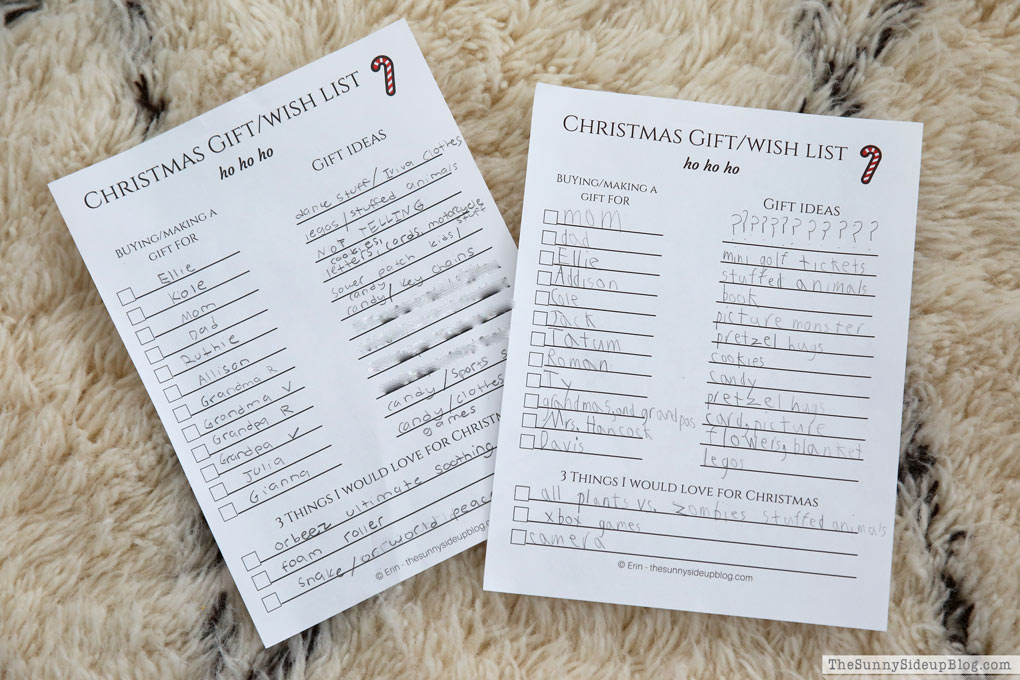 CHRISTMAS GIFT/WISH LIST
ho ho ho
BUYING/MAKING A
GIFT FOR
GIFT IDEAS
Ellie
Kole
Mom
Dad
Ruthie
Allison
Grandma R
Grandma V
Grandpa R
Grandpa V
Julia
Gianna
dance stuff/Iviva clothes
legos/stuffed animals
NOT TELLING
cookies,
letters, cards, motorcycle stuff
sower patch kids/
candy
candy/key chains
candy/sports
candy/clothes
games
3 THINGS I WOULD LOVE FOR CHRISTMAS
orbeez ultimate soothing
foam roller
snake/orrworld peace
© Erin - thesunnysideupblog.com
CHRISTMAS GIFT/WISH LIST
ho ho ho
BUYING/MAKING A
GIFT FOR
GIFT IDEAS
mom
dad
Ellie
Addison
Cole
Jack
Tatum
Roman
Ty
grandmas, and grandpas
Mrs. Hancock
Davis
??????????
mini golf tickets
stuffed animals
book
picture monster
pretzel hugs
cookies
candy
pretzel hugs
card, picture
flowers, blanket
legos
3 THINGS I WOULD LOVE FOR CHRISTMAS
all plants vs. zombies stuffed animals
xbox games
camera
© Erin - thesunnysideupblog.com
THESUNNYSIDEUPBLOG.COM